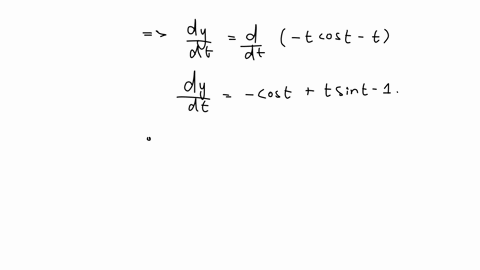 => dy/dt = d/dt (-t cost - t)
dy/dt = -cost + t sint - 1.